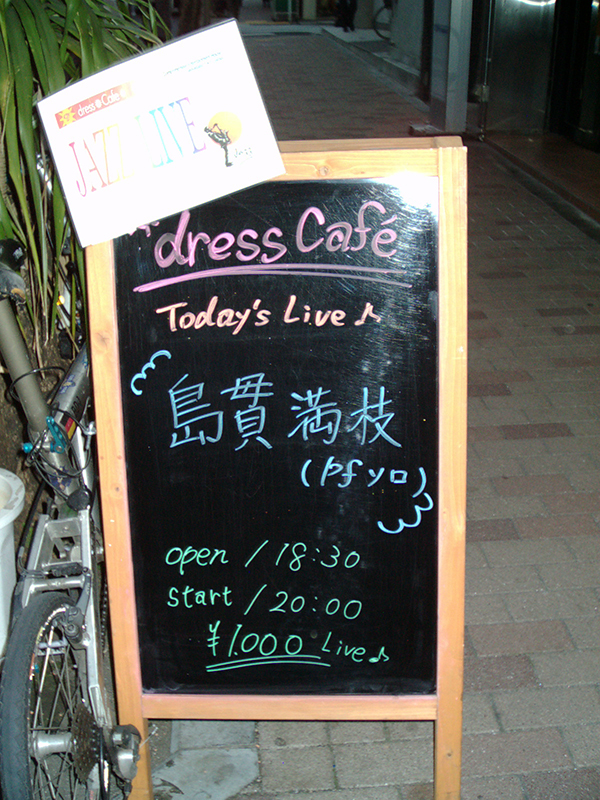 dress Cafe
JAZZ LIVE
dress Café
Today's Live♪
島貫満枝
(pfソロ)
open / 18:30
start / 20:00
¥1.000 Live♪